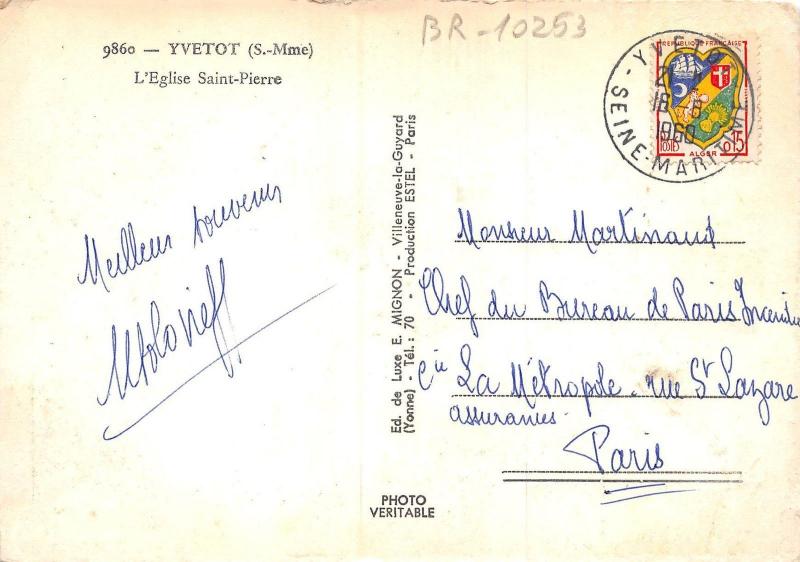 BR-10253
9860 — YVETOT (S.-Mme)
L'Eglise Saint-Pierre
REPUBLIQUE FRANÇAISE
POSTES 0,15
ALGER
YVETOT
1960
SEINE-MARITIME
Meilleur souvenir
Ed. de Luxe E. MIGNON - Villeneuve-la-Guyard
(Yonne) - Tél.: 70 - Production ESTEL - Paris
Monsieur Martinaud
Chef du Bureau de Paris Incendie
Cie La Métropole - rue St Lazare
assurances.
Paris
PHOTO
VERITABLE